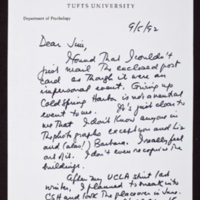 TUFTS UNIVERSITY
Department of Psychology
9/5/92
Dear Jim,
I found that I couldn't
just mail the enclosed post
card as though it were an
impersonal event. Giving up
Cold Spring Harbor is not a neutral
event to me. It's just clear to
me that I don't know anyone in
the photographs except you and Liz
and (alas!) Barbara. I really feel
out of it. I don't even recognize the
buildings.
After my UCLA stint last
winter, I planned to sneak into
CSH and look the place over in June.